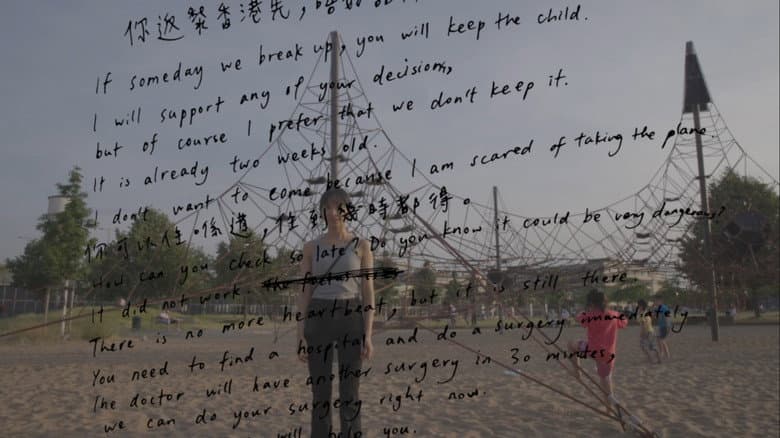 你返黎香港先，
If someday we break up, you will keep the child.
I will support any of your decision,
but of course I prefer that we don't keep it.
It is already two weeks old.
I don't want to come because I am scared of taking the plane
你可以住喺這，住到幾時都得。
How can you check so late? Do you know it could be very dangerous?
It did not work.
There is no more heartbeat, but it is still there
You need to find a hospital and do a surgery immediately
The doctor will have another surgery in 30 minutes,
we can do your surgery right now.
will help you.